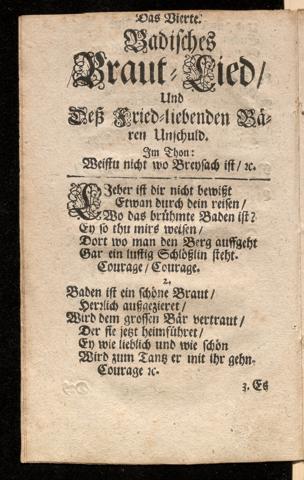 Das Vierte.
Badisches
Braut-Lied/
Und
Deß Fried-liebenden Bä-
ren Unschuld.
Im Thon:
Weistu nicht wo Breysach ist/ ꝛc.
Lieber ist dir nicht bewißt
Etwan durch dein reisen/
Wo das brühmte Baden ist?
Ey so thu mirs weisen/
Dort wo man den Berg auffgeht
Gar ein luftig Schlößlin steht.
Courage/ Courage.
2.
Baden ist ein schöne Braut/
Herzlich außgezieret/
Wird dem grossen Bär vertraut/
Der sie jetzt heimführet/
Ey wie lieblich und wie schön
Wird zum Tantz er mit ihr gehn.
Courage ꝛc.
3. Es